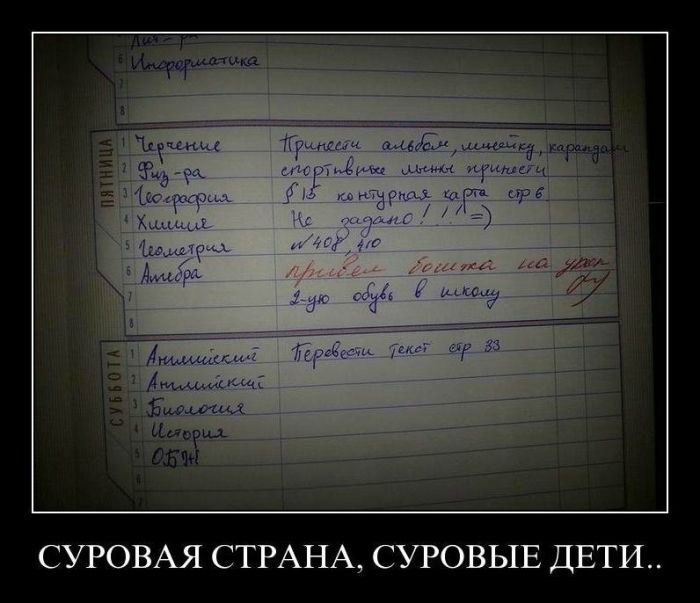 Лит-ра
6 Информатика
7
8
ПЯТНИЦА
1 Черчение Принести альбом, линейку, карандаш
2 Физ-ра спортивные лыжи принести
3 География § 15 контурная карта стр 6
4 Химия Не задано!!! =)
5 Геометрия №408, 410
6 Алгебра привёл бомжа на урок
7 2-ую обувь в школу
8
СУББОТА
1 Английский Перевести текст стр 33
2 Английский
3 Биология
4 История
5 ОБЖ
6
7
СУРОВАЯ СТРАНА, СУРОВЫЕ ДЕТИ..